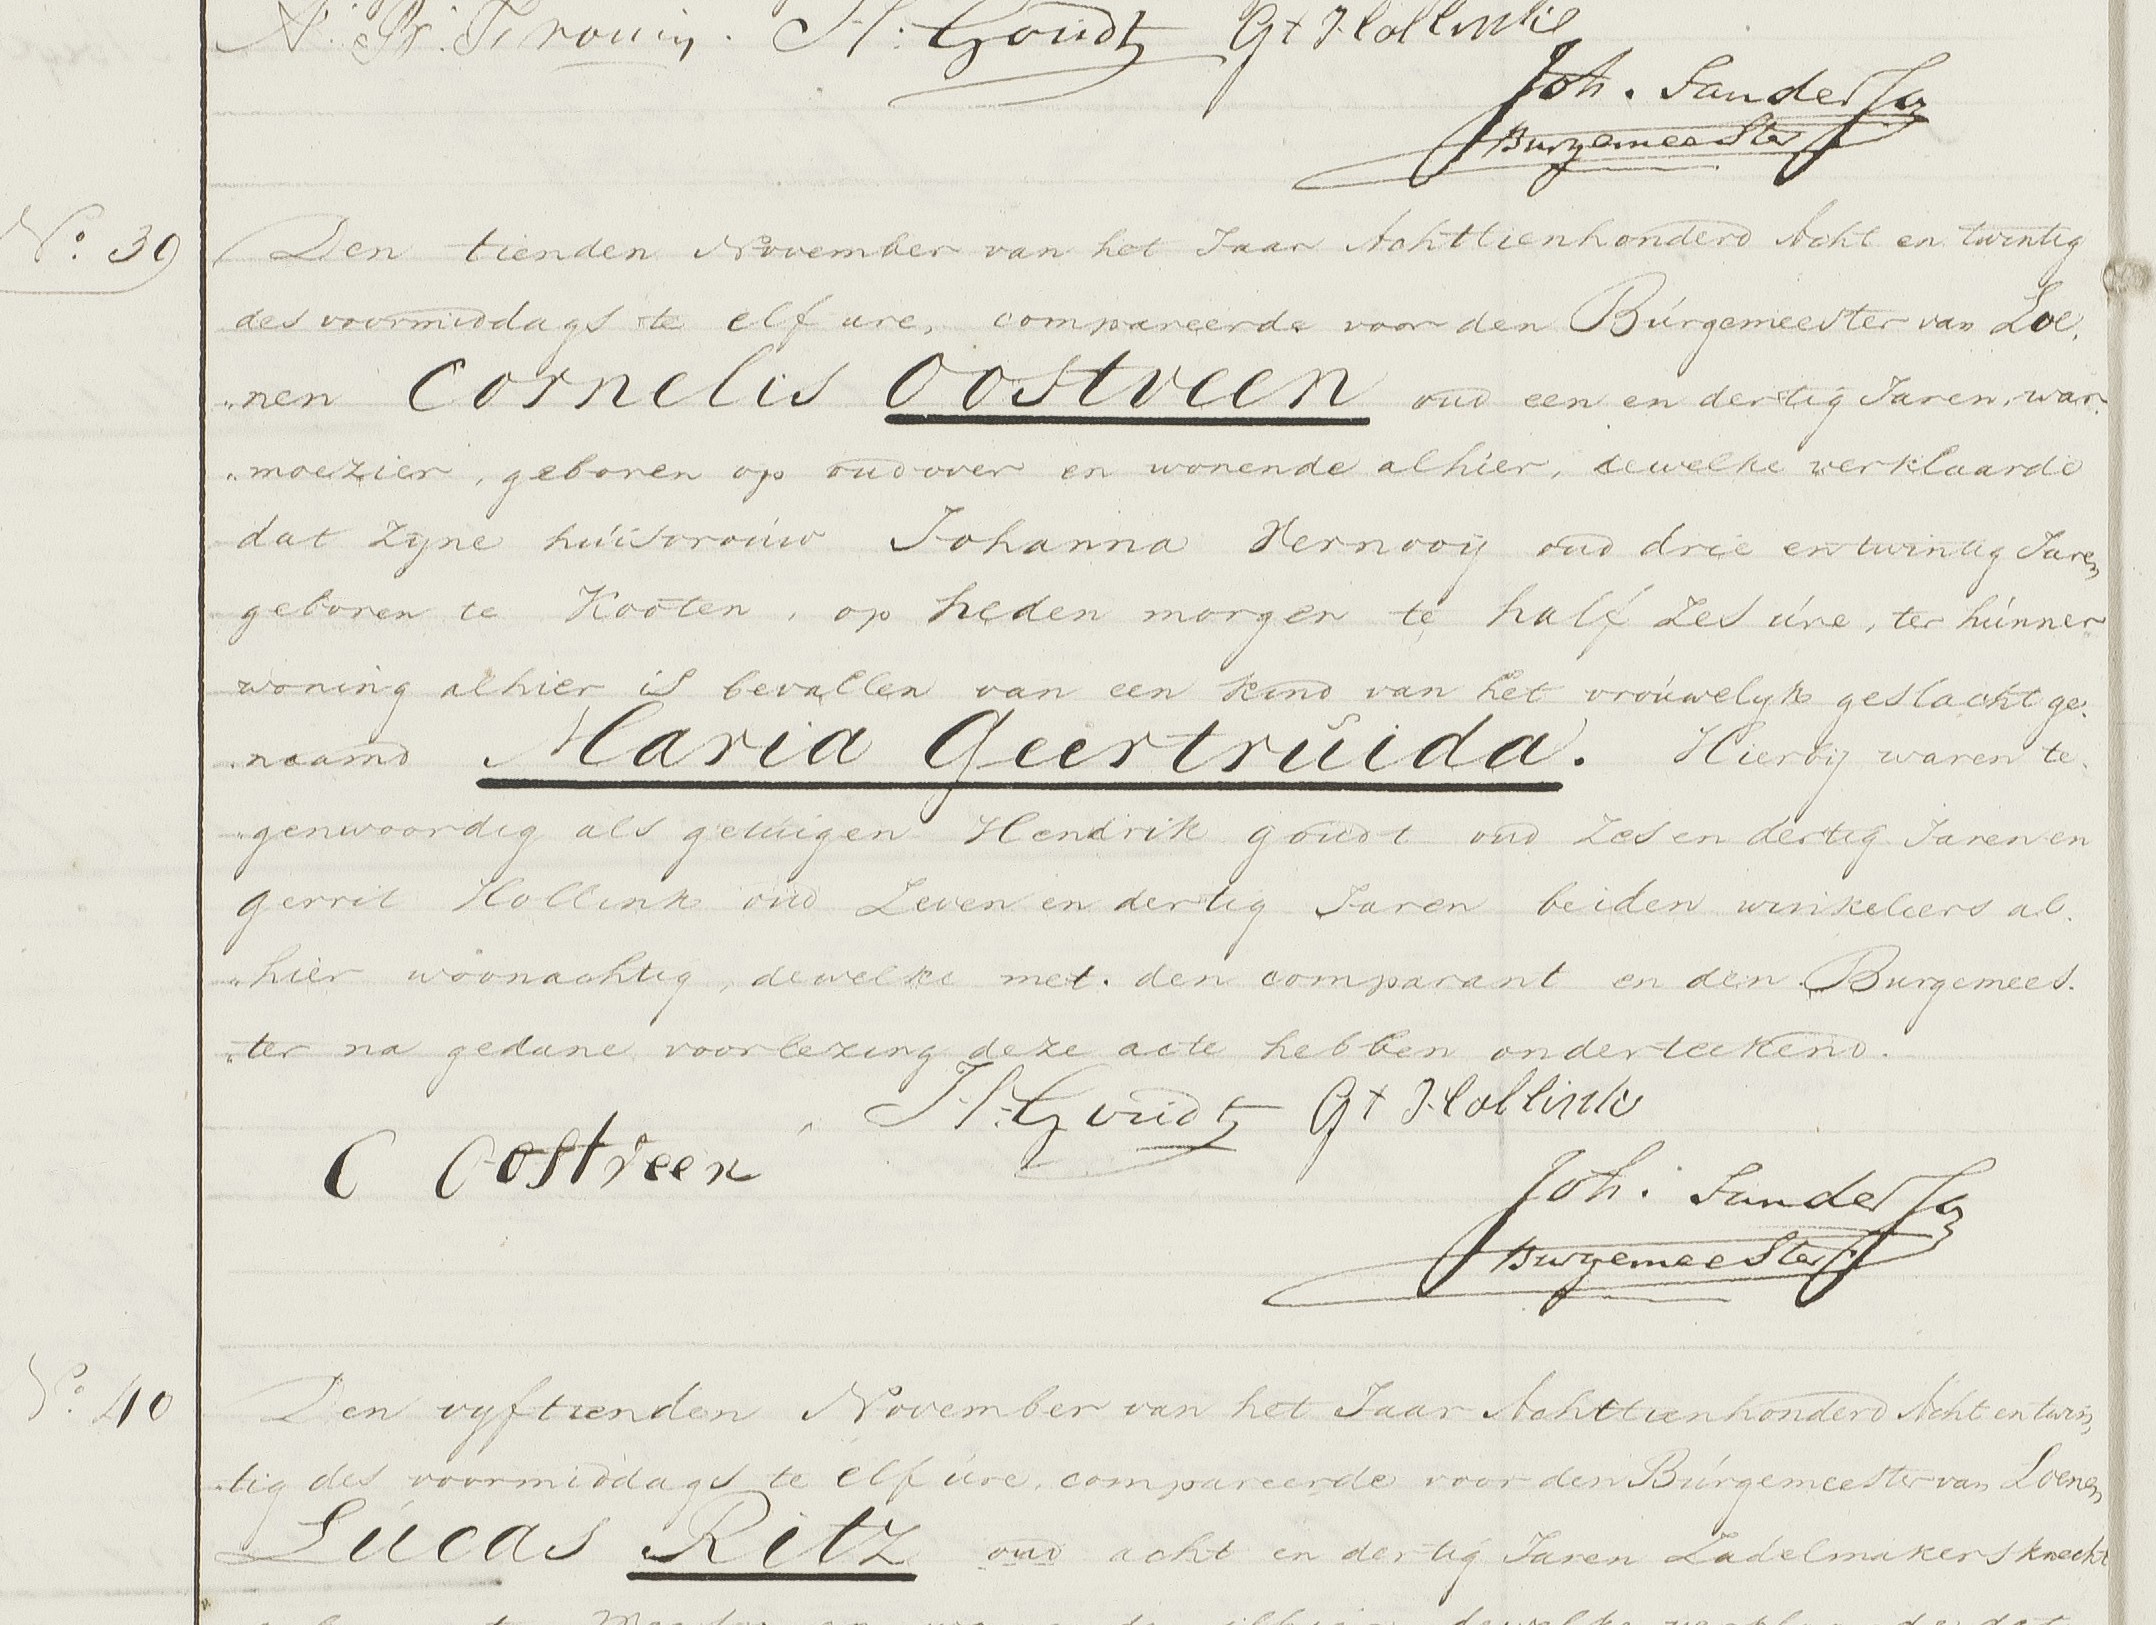 H: Goudt Gt Hollink
Joh. Sanders Jz
Burgemeester
No. 39
Den tienden November van het Jaar Achttienhonderd Acht en twintig
des voormiddags te elf ure, compareerde voor den Búrgemeester van Loe„
„nen Cornelis Oostveen oud een en dertig Jaren, war„
„moezier, geboren op oudover en wonende alhier, dewelke verklaarde
dat zyne húisvroúw Johanna Vernooij oud drie en twintig Jaren
geboren te Kooten, op heden morgen te half zes úre, ter húnner
woning alhier is bevallen van een kind van het vroúwelyk geslacht ge„
„naamd Maria Geertrúida. Hierbij waren te„
„genwoordig als getúigen Hendrik Goudt oud zes en dertig Jaren en
Gerrit Hollink oud Zeven en dertig Jaren beiden winkeliers al„
„hier woonachtig, dewelke met den comparant en den Burgemees„
„ter na gedane voorlezing deze acte hebben onderteekend.
H: Goudt Gt Hollink
C Oostveen
Joh: Sanders Jz
Burgemeester
No. 40
Den vyftienden November van het Jaar Achttienhonderd Acht en twin„
„tig des voormiddags te elf úre, compareerde voor den Búrgemeester van Loenen
Lúcas Ritz oud acht en dertig Jaren Zadelmakersknecht